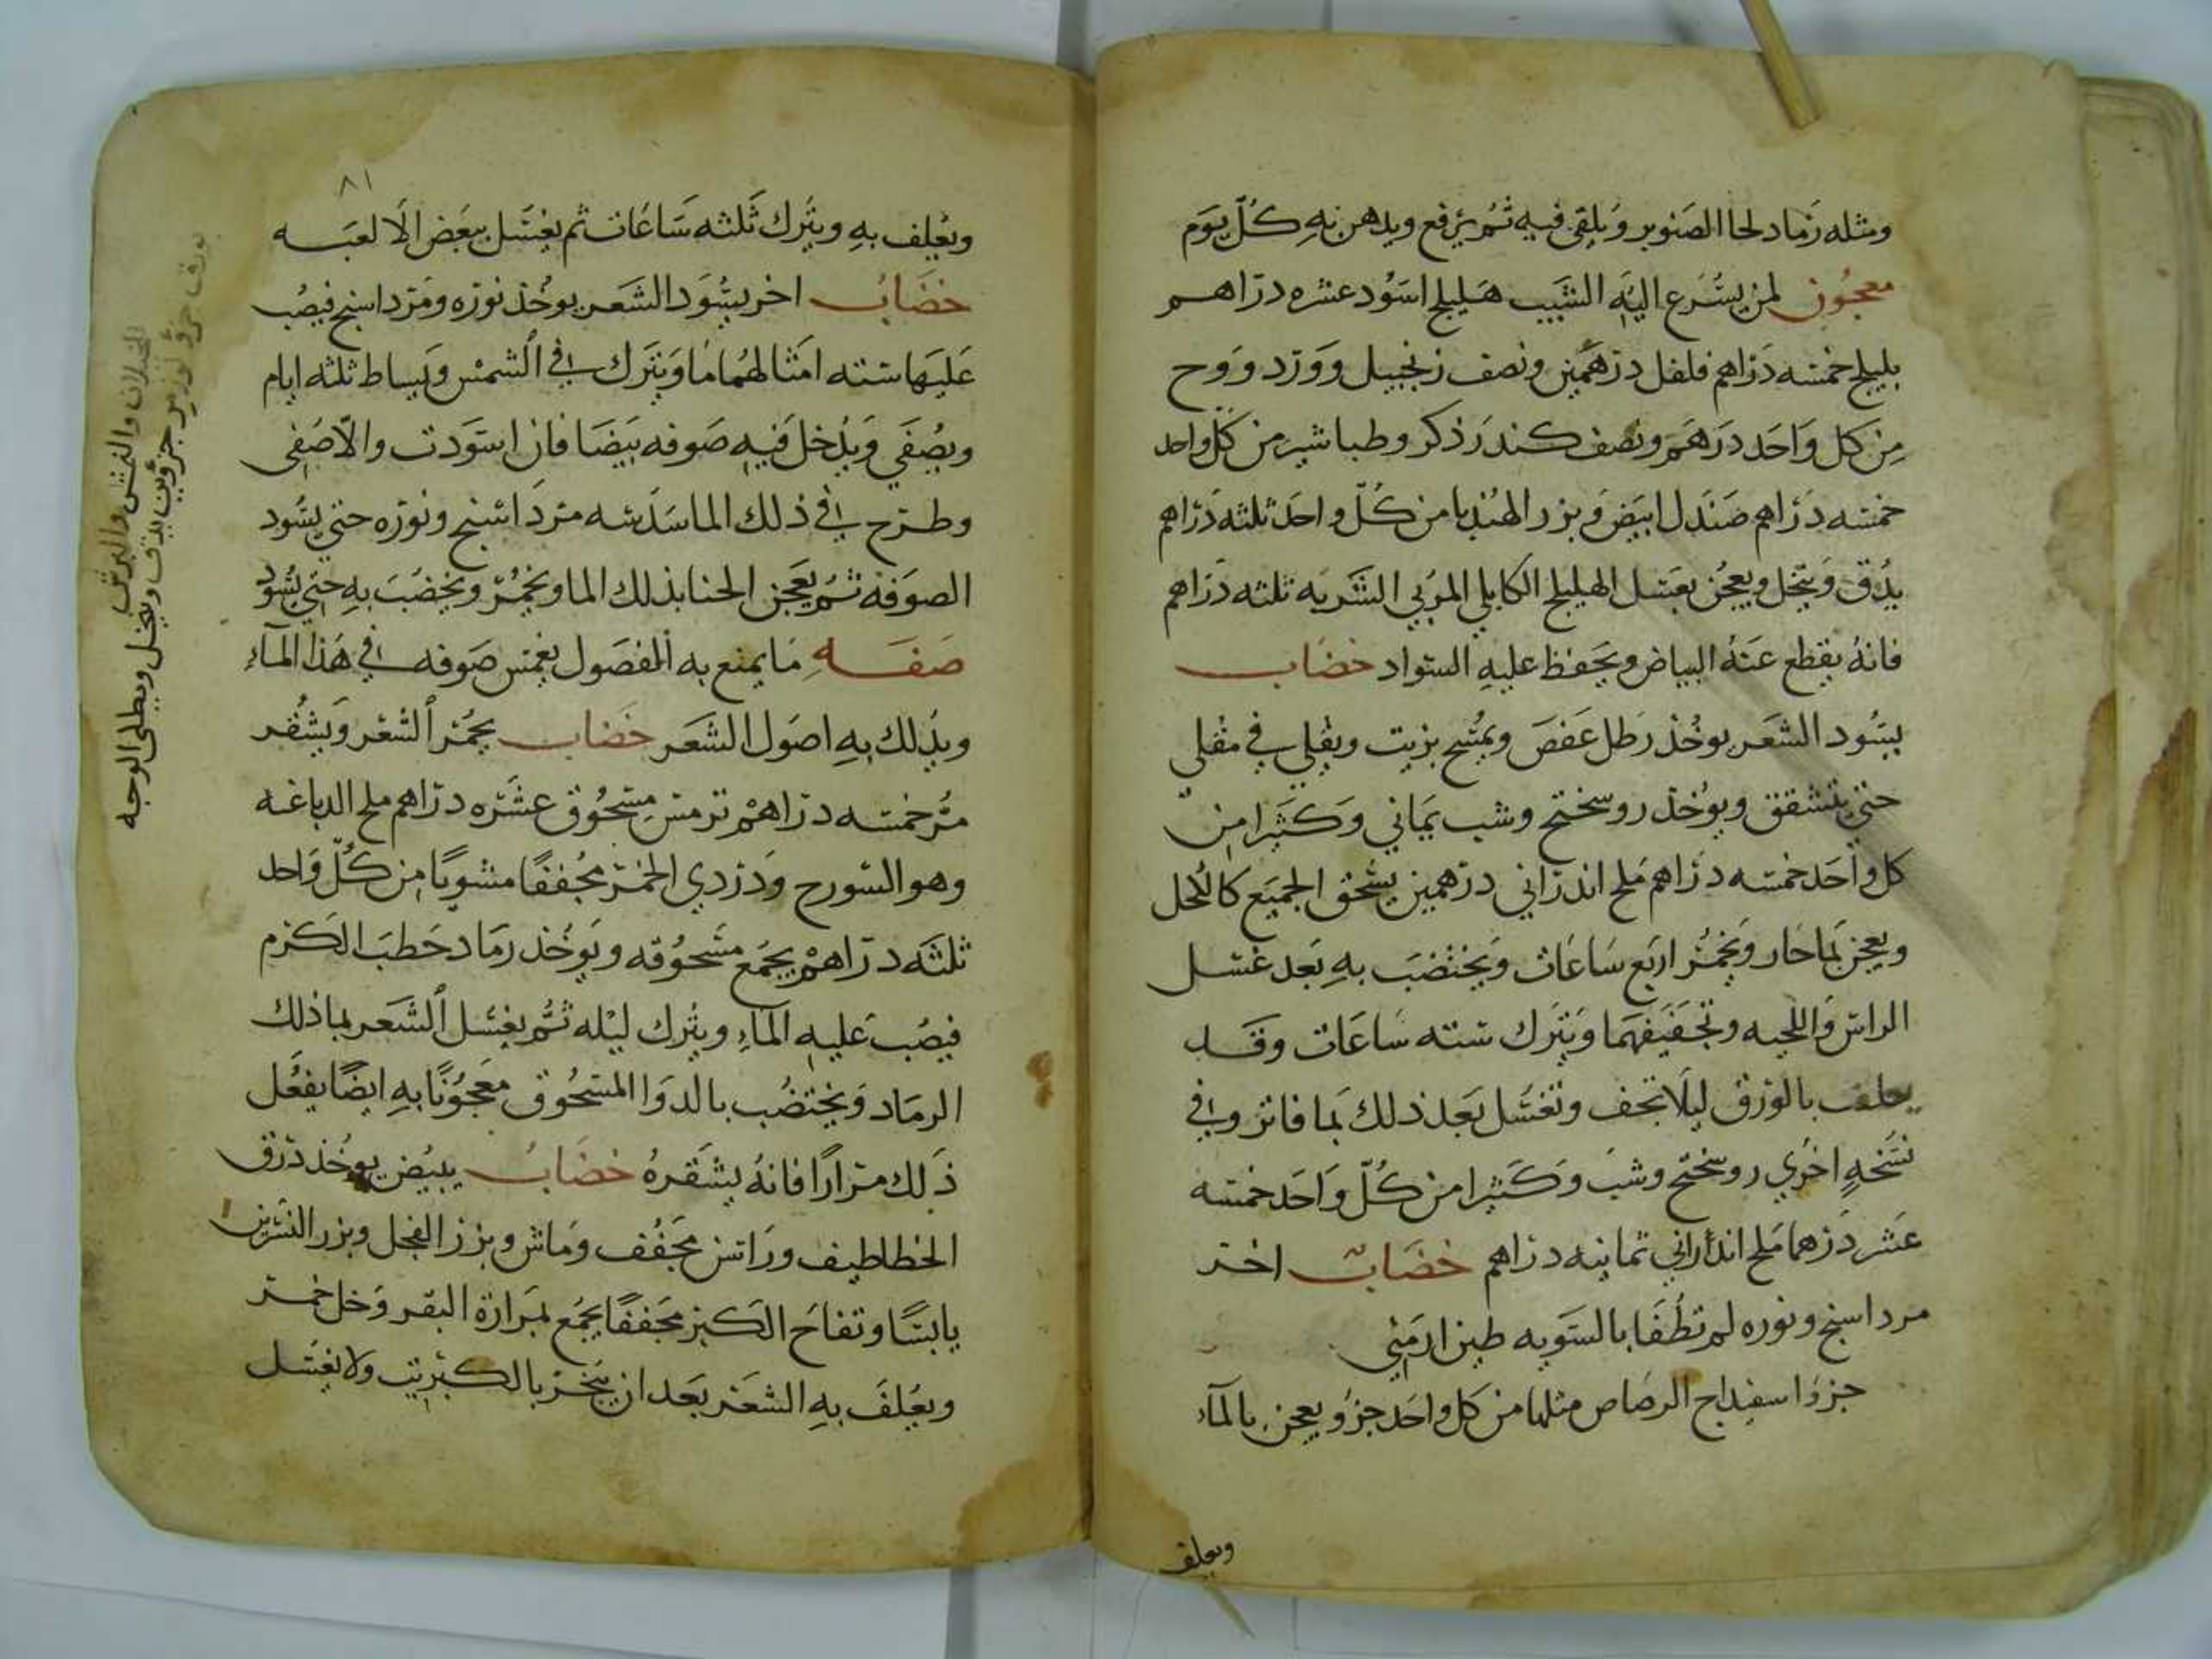 ومثله رماد لحا الصنوبر ويلقى فيه ثم يرفع ويدهن به كل يوم
معجون لمن يسرع اليه الشيب هليلج اسود عشره دراهم
بليلج خمسه دراهم فلفل درهمين ونصف زنجبيل وورد ووج
من كل واحد درهم ونصف كندر ذكر وطباشير من كل واحد
خمسه دراهم صندل ابيض وبزر الهندبا من كل واحد ثلثه دراهم
يدق وينخل ويعجن بعسل الهليلج الكابلي المربي الشربه ثلثه دراهم
فانه يقطع عنه البياض ويحفظ عليه السواد خضاب
يسود الشعر يوخذ رطل عفص ويمسح بزيت ويقلي في مقلي
حتي يتشقق ويوخذ روسختج وشب يماني وكثيرا من
كل واحد خمسه دراهم ملح اندراني درهمين يسحق الجميع كالكحل
ويعجن بما حار ويخمر اربع ساعات ويختضب به بعد غسل
الراس واللحيه وتجفيفهما ويترك سته ساعات وقد
يعلف بالورق ليلا تجف وتغسل بعد ذلك بما فاتر وفي
نسخه اخري روسختج وشب وكثيرا من كل واحد خمسه
عشر درهما ملح اندراني ثمانيه دراهم خضاب اخر
مرداسنج ونوره لم تطفا بالسويه طين ارمني
جزوا سفيداج الرصاص مثلها من كل واحد جزو يعجن بالمآء
ويعلف
٨١
ويعلف به ويترك ثلثه ساعات ثم يغسل ببعض الالعبه
خضاب اخر يسود الشعر يوخذ نوره ومرداسنج فيصب
عليها سته امثالهما ما ويترك في الشمس ويساط ثلثه ايام
ويصفي ويدخل فيه صوفه بيضا فان اسودت والا صفى
وطرح في ذلك الما سدسه مرداسنج ونوره حتي يسود
الصوفه ثم يعجن الحنا بذلك الما ويخمر ويخضب به حتي يسود
صفه ما يمنع به الفصول يغمس صوفه في هذا المآء
ويدلك به اصول الشعر خضاب يحمر الشعر ويشقر
مر خمسه دراهم ترمس مسحوق عشره دراهم ملح الدباغه
وهو السورج ودردي الخمر مجففا مشويا من كل واحد
ثلثه دراهم يجمع مسحوقه ويوخذ رماد حطب الكرم
فيصب عليه المآء ويترك ليله ثم يغسل الشعر بما ذلك
الرماد ويختضب بالدوا المسحوق معجونا به ايضا يفعل
ذلك مرارا فانه يشقره خضاب يبيض يوخذ ذرق
الخطاطيف وراس مجفف وماش وبزر الفجل وبزر النسرين
يابسا وتفاح الكبر مجففا يجمع بمرارة البقر وخل خمر
ويعلف به الشعر بعد ان يبخر بالكبريت ولا يغسل
والنمش والبرش
جزوين يدق وينخل ويطلى الوجه